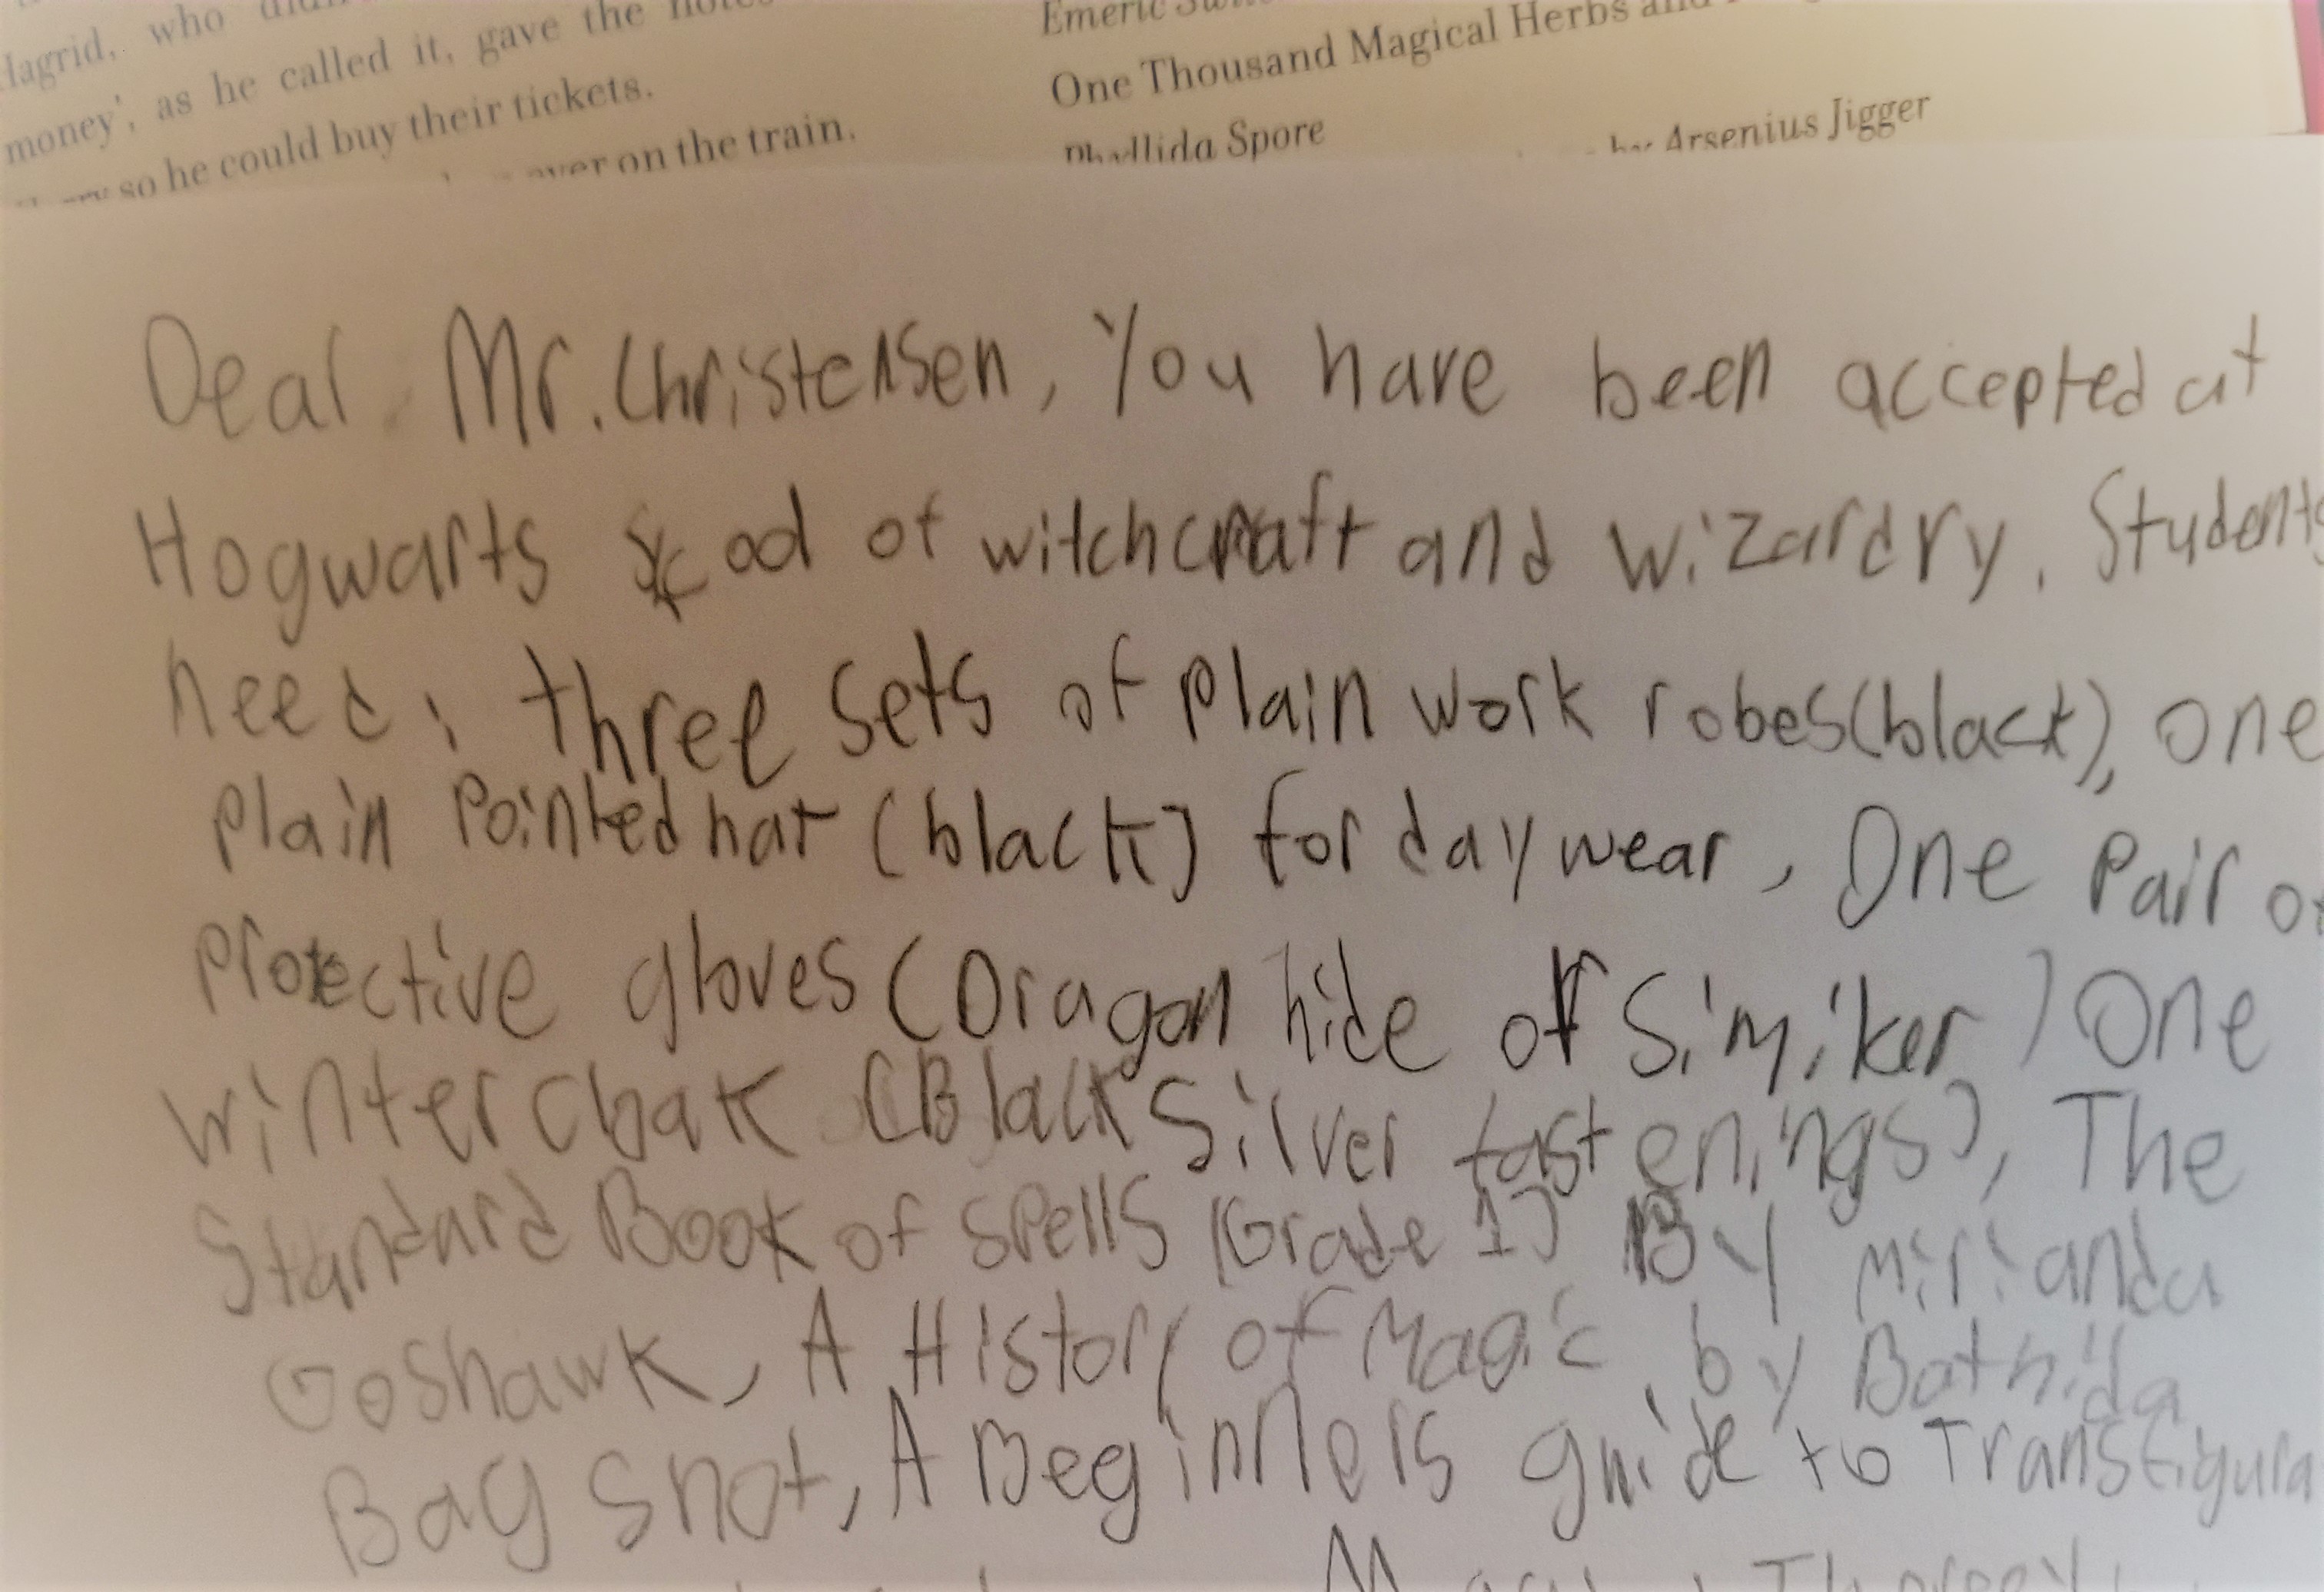 Hagrid, who
money', as he called it, gave the notes
so he could buy their tickets.
over on the train.
Emeric
One Thousand Magical Herbs and
Phyllida Spore
by Arsenius Jigger
Dear Mr. Christensen, You have been accepted at
Hogwarts of witchcraft and wizardry. Students
need: three sets of plain work robes(black), one
Plain Pointed hat (black) for day wear, One Pair of
Protective gloves (Dragon hide or Simiker) One
winter cloak (Black Silver fastenings), The
Standard Book of Spells (Grade 1) By Mirianda
Goshawk, A History of Magic by Bathilda
Bag Shot, A Beginners guide to Transfigura
Theory